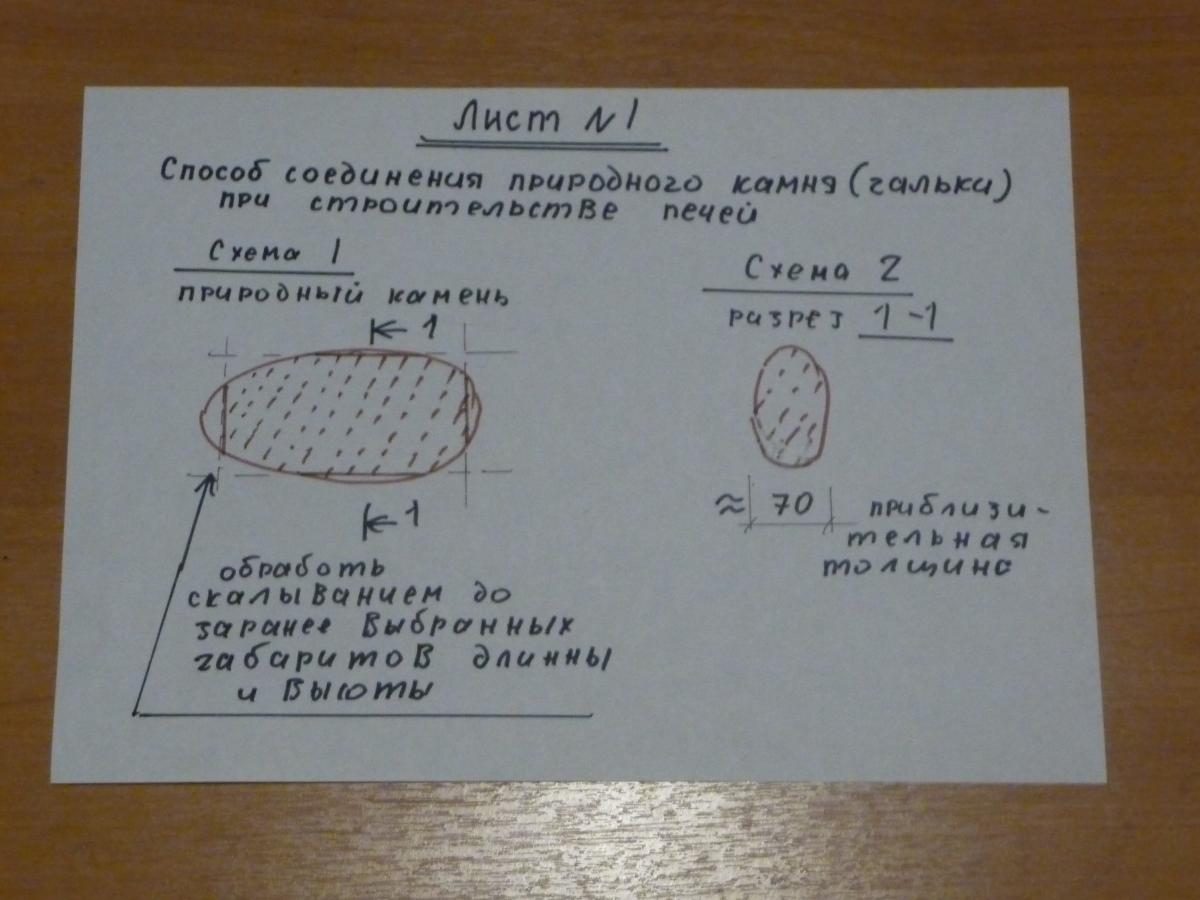 Лист N1
Способ соединения природного камня (гальки)
при строительстве печей
Схема 1
природный камень
1
1
обработь
скалыванием до
заранее выбранных
габаритов длинны
и высоты
Схема 2
разрез 1-1
≈ 70 приблизи-
тельная
толщина